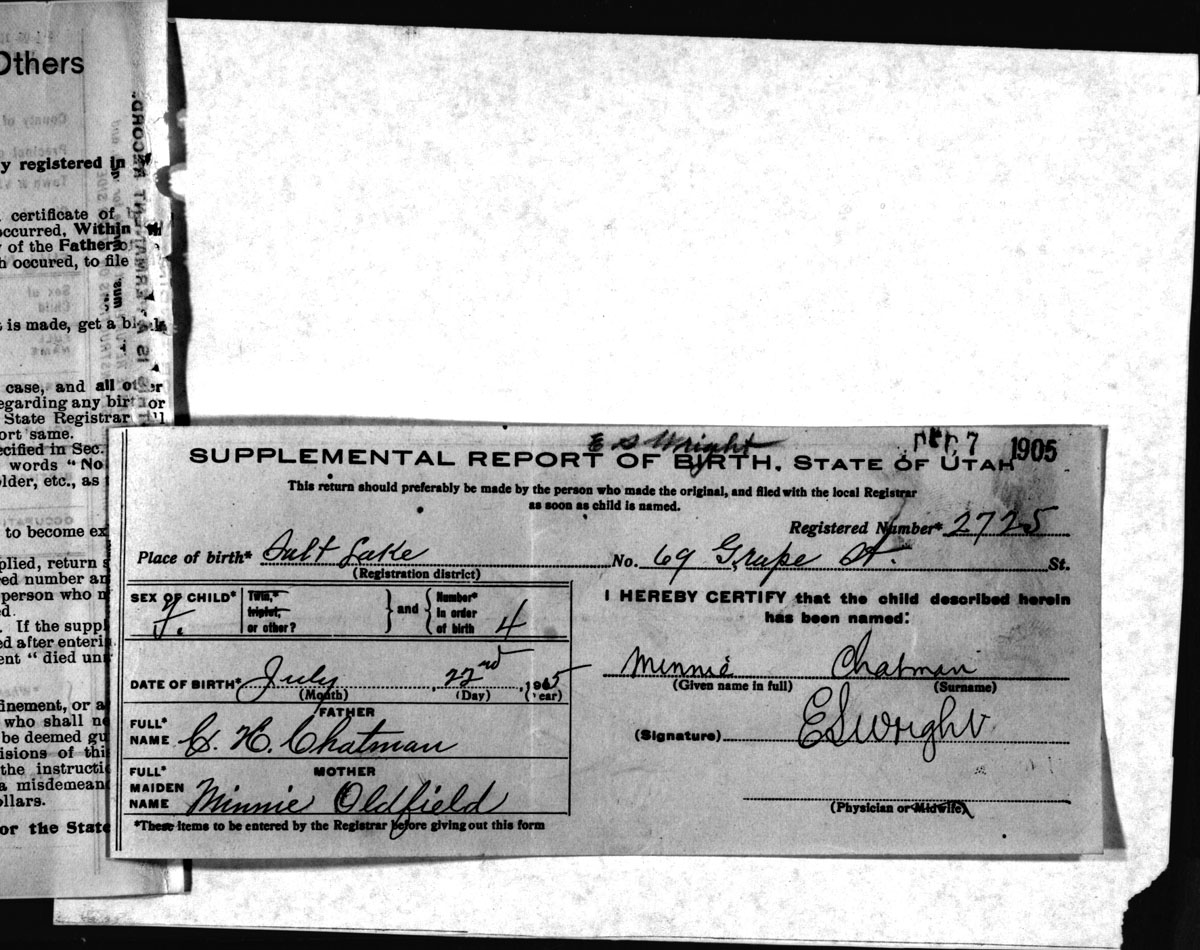 Others
y registered in
certificate of
occurred, Within
of the Father o
h occured, to file
t is made, get a
case, and all other
egarding any birt or
State Registrar
ort same.
ecified in Sec.
words "No
older, etc., as
to become ex
plied, return s
red number an
person who n
d.
. If the supp
ed after enteri
ent "died un
finement, or a
who shall n
be deemed gu
isions of thi
the instructi
a misdemean
ollars.
or the State
E S Wright
7 1905
SUPPLEMENTAL REPORT OF BIRTH, STATE OF UTAH
This return should preferably be made by the person who made the original, and filed with the local Registrar
as soon as child is named.
Registered Number* 2725
Place of birth* Salt Lake No. 69 Grape St. St.
(Registration district)
SEX OF CHILD* F. Twin,* triplet, or other? and Number* in order of birth 4
DATE OF BIRTH* July 22nd, 1905
(Month) (Day) (Year)
FATHER
FULL* NAME C. H. Chatman
MOTHER
FULL* MAIDEN NAME Minnie Oldfield
*These items to be entered by the Registrar before giving out this form
I HEREBY CERTIFY that the child described herein
has been named:
Minnie Chatman
(Given name in full) (Surname)
(Signature) E S Wright
(Physician or Midwife)